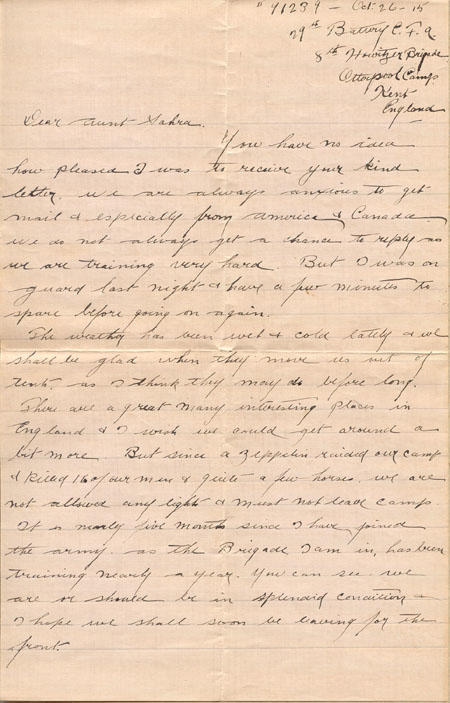 " 91239 - Oct. 26 - 15
29th Battery C. F. A.
8th Howitzer Brigade
Otterpool Camp
Kent
England
Dear Aunt Sahra.
You have no idea
how pleased I was to receive your kind
letter. we are always anxious to get
mail & especially from America & Canada
We do not always get a chance to reply as
we are training very hard. But I was on
guard last night & have a few minutes to
spare before going on again.
The weather has been wet & cold lately & we
shall be glad when they move us out of
tents as I think they may do before long.
There are a great many interesting places in
England & I wish we could get around a
bit more. But since a Zeppelin raided our camp
& killed 16 of our men & quite a few horses. we are
not allowed any lights & must not leave camp.
It is nearly five months since I have joined
the army. as the Brigade I am in, has been
training nearly a year. You can see we
are or should be in splendid condition &
I hope we shall soon be leaving for the
front.